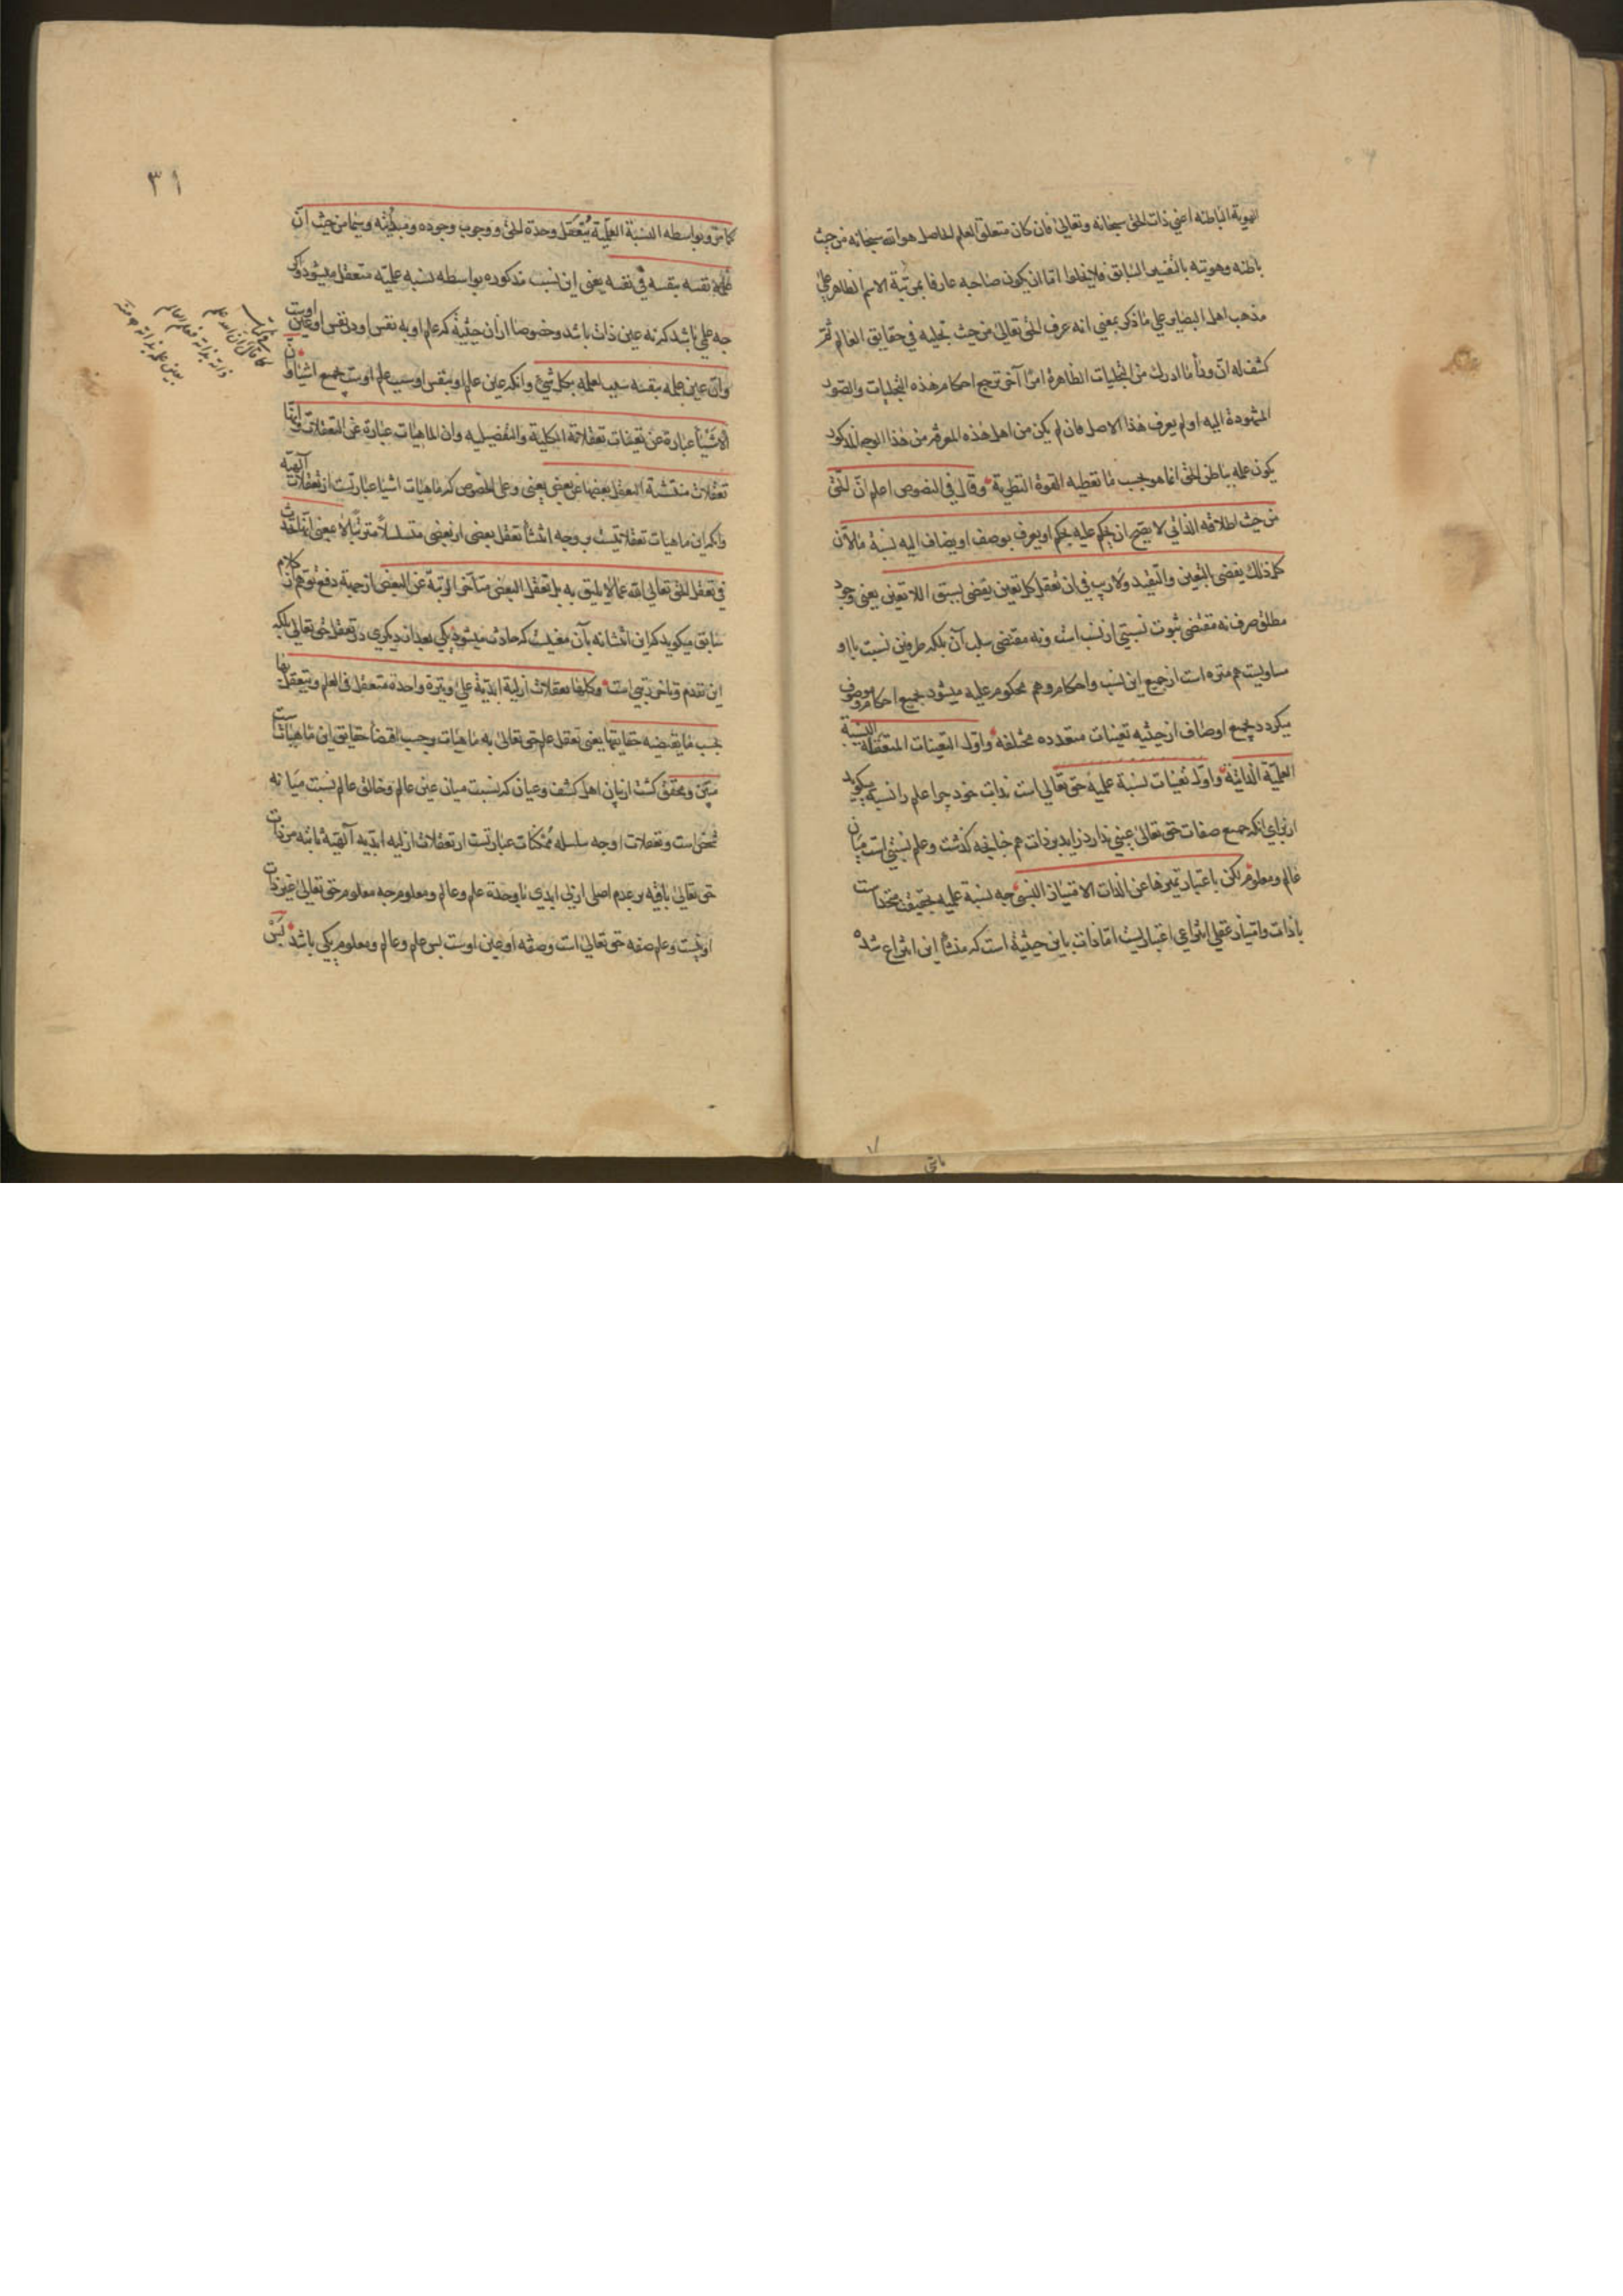 الهوية الباطنه اعني ذات الحق سبحانه وتعالى فان كان متعلق العلم الحاصل هو الله سبحانه من حيث
باطنه وهويته بالتفسير السابق فلا يخلوا اما ان يكون صاحبه عارفا بمرتبة الاسم الظاهر علي
مذهب اهل البصاير علي ما ذكر بمعني انه عرف الحق تعالى من حيث تجليه في حقايق العالم ثم
كشف له ان وراء ما ادرك من التجليات الظاهرة امرًا آخر ترجع احكام هذه التجليات والصور
المشهودة اليه او لم يعرف هذا الاصل فان لم يكن من اهل هذه المعرفة من هذا الوجه المذكور
يكون علمه بباطن الحق انما هو بحسب ما تعطيه القوة النظرية وقال في النصوص اعلم ان الحق
من حيث اطلاقه الذاتي لا يصح ان يحكم عليه بحكم او يعرف بوصف او يضاف اليه نسبة ما لان
كل ذلك يقضي بالتعين والتقيد ولا ريب في ان تعقل كل تعين يقضي بسبق اللا تعين يعني وجود
مطلق صرف نه مقتضي ثبوت نسبتي از نسب است ونه مقتضي سلب آن بلكه طرفين نسبت با او
مساويست هم منزه است از جميع اين نسب واحكام وهم محكوم عليه ميشود بجميع احكام وموصوف
ميكردد بجميع اوصاف از حيثيه تعينات متعدده مختلفه واول التعينات المتعقلة النسبة
العلميّة الذاتية واول تعينات نسبة علميه حق تعالى است بذات خود چرا علم را نسبة ميكويد
از براي انكه جميع صفات حق تعالى عيني ندارد زايد بر ذات هم چنانچه كذشت وعلم نسبتي است ميان
عالم ومعلوم لكن باعتبار تميزها عن الذات الامتياز النسبي چه نسبة علميه بتحقيق متحد است
با ذات وامتياز عقلي انتزاعي اعتباريست اما ذات باين حيثية است كه منشأ اين انتزاع شده
٣١
كما مر وبواسطه النسبة العلميّة يتعقل وحدة الحق ووجوب وجوده ومبدئيته وسيما من حيث ان
علمه نفسه بنفسه في نفسه يعني اين نسب مذكوره بواسطه نسبه علميّه متعقل ميشود واكر
چه علمي باشد كه نه عين ذات باشد وخصوصا از ان حيثية كه علم او به نفس او در نفس او عين اوست
وان عين علمه بنفسه سبب لعلمه بكل شيء وانكه عين علم او بنفس او سبب علم اوست بجميع اشيا وان
الاشياء عبارة عن تعينات تعقلاته الكلية والتفصيليه وان الماهيات عبارة عن التعقلات وانها
تعقلات منتشئة التعقل بعضها عن بعض يعني وعلى الخصوص كه ماهيات اشيا عبارتست از تعقلات آلهيّه
وانكه اين ماهيات تعقلاتيست بر وجه انتشأ تعقل بعضي از بعضي متسلسلاً مترتّبًا لا بمعني انها تحدث
في تعقل الحق تعالي الله عما لا يليق به بل تعقل البعض متأخر الرتبة عن البعض از جهته دفع توهم از كلام
سابق ميكويد كه اين انتشا نه بآن معنيست كه حادث ميشود يكي بعد از ديكري در تعقل حق تعالي بلكه
اين تقدم وتاخر رتبي است وكلها تعقلات ازلية ابدّية على وتيرة واحدة متعقل في العلم ويتعقل بها
بحسب ما يقتضيه حقايقها يعني تعقل علم حق تعالى به ماهيات برحسب اقتضا حقايق اين ماهيات است
مبيّن ومحقق كشت از بيان اهل كشف وعيان كه نسبت ميان عين عالم وخالق عالم نسبت ميانه
شخص است وتعقلات او چه سلسله ممكنات عبارتست از تعقلات ازليه ابدّيه آلهيّه ثابته در ذات
حق تعالى باقيه بر عدم اصلي ازلي ابدي با وحدة علم وعالم ومعلوم چه معلوم حق تعالى غير ذات
او نيست وعلم صفه حق تعالى است وصفه او عين اوست پس علم وعالم ومعلوم يكي باشد پس